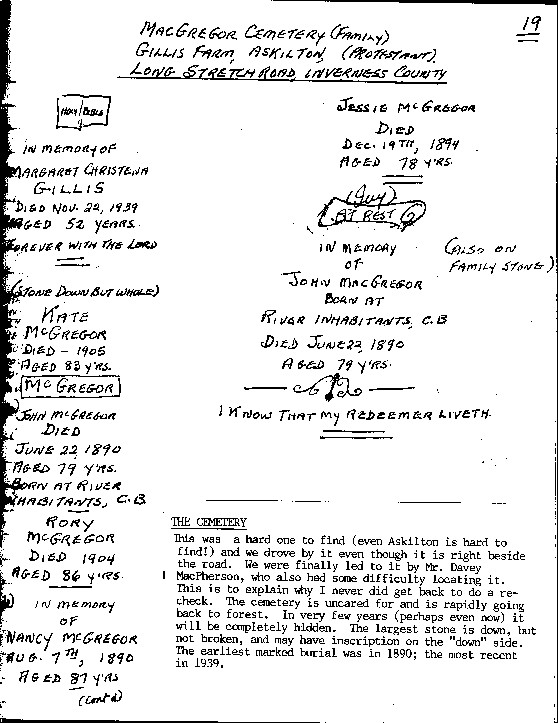 19
MacGregor Cemetery (Family)
Gillis Farm, Askilton, (Protestant),
Long Stretch Road, Inverness County
Holy Bible
In memory of
Margaret Christena
Gillis
Died Nov. 22, 1939
Aged 52 years.
Forever with the Lord
(Stone Down But Whole)
Kate
McGregor
Died - 1905
Aged 83 y'rs.
McGregor
John McGregor
Died
June 22 1890
Aged 79 y'rs.
Born at River
Inhabitants, C.B.
Rory
McGregor
Died 1904
Aged 86 y'rs.
In memory
of
Nancy McGregor
Aug. 7th, 1890
Aged 87 y'rs
(Cont'd)
Jessie McGregor
Died
Dec. 19th, 1894
Aged 78 y'rs.
At Rest
In memory
of
(Also on
Family Stone)
John MacGregor
Born at
River Inhabitants, C.B
Died June 22, 1890
Aged 79 y'rs.
I know that my Redeemer liveth.
THE CEMETERY
This was a hard one to find (even Askilton is hard to
find!) and we drove by it even though it is right beside
the road. We were finally led to it by Mr. Davey
MacPherson, who also had some difficulty locating it.
This is to explain why I never did get back to do a re-
check. The cemetery is uncared for and is rapidly going
back to forest. In very few years (perhaps even now) it
will be completely hidden. The largest stone is down, but
not broken, and may have inscription on the "down" side.
The earliest marked burial was in 1890; the most recent
in 1939.